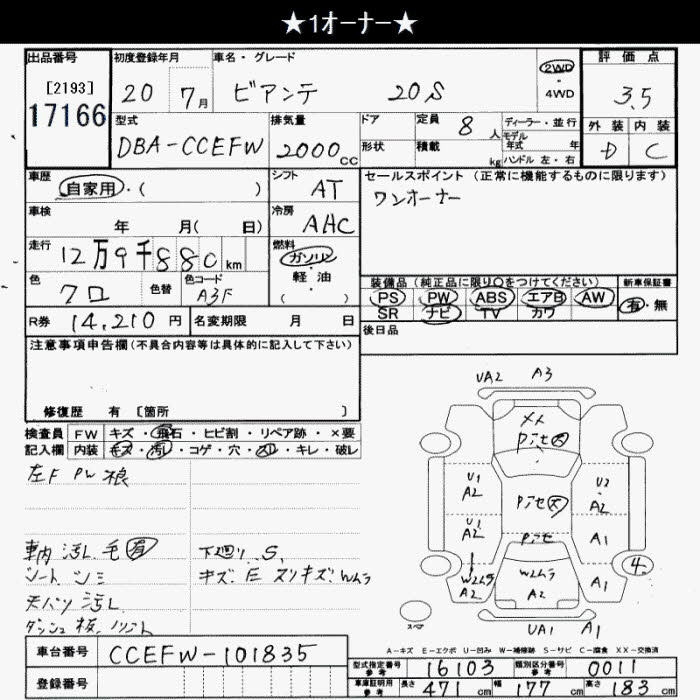 ★1オーナー★
出品番号 初度登録年月 車名・グレード 評価点
[2193] 20 7月 ビアンテ 20S 2WD・4WD 3.5
17166
型式 排気量 ドア 定員 8人 ディーラー・並行 外装 内装
DBA-CCEFW 2000cc 形状 積載 kg モデル年式 年 ハンドル 左・右 D C
車歴 自家用・( ) シフト AT セールスポイント(正常に機能するものに限ります)
ワンオーナー
車検 年 月( 日) 冷房 AHC
走行 12万9千880km 燃料 ガソリン・軽・油 ( )
色 クロ 色替 色コード A3F
装備品(純正品に限り○をつけてください) 新車保証書
PS PW ABS エアB AW 有・無
SR ナビ TV カワ
R券 14,210円 名変期限 月 日 後日品
注意事項申告欄(不具合内容等は具体的に記入して下さい)
修復歴 有 [箇所 ]
検査員 FW キズ・飛石・ヒビ割・リペア跡・×要
記入欄 内装 キズ・汚レ・コゲ・穴・スレ・キレ・破レ
左F PW
車内 汚レ 毛 有 下廻リ S,
シート シミ キズ.E スリキズ.Wムラ
天バリ 汚レ
ダッシュ板、ノリハト
UA2 A3
メメ
Pアセ大
U1 A2
Pアセ大
U2 A2
U1 A2
Pアセ
A1
W2ムラ A2
W2ムラ A2
A1
4
スペア
UA1 A1
A-キズ E-エクボ U-凹み W-補修跡 S-サビ C-腐食 XX-交換済
車台番号 CCEFW-101835
型式指定番号 参考 16103 類別区分番号 参考 0011
登録番号
車庫証明用 参考 長さ 471cm 幅 177cm 高さ 183cm